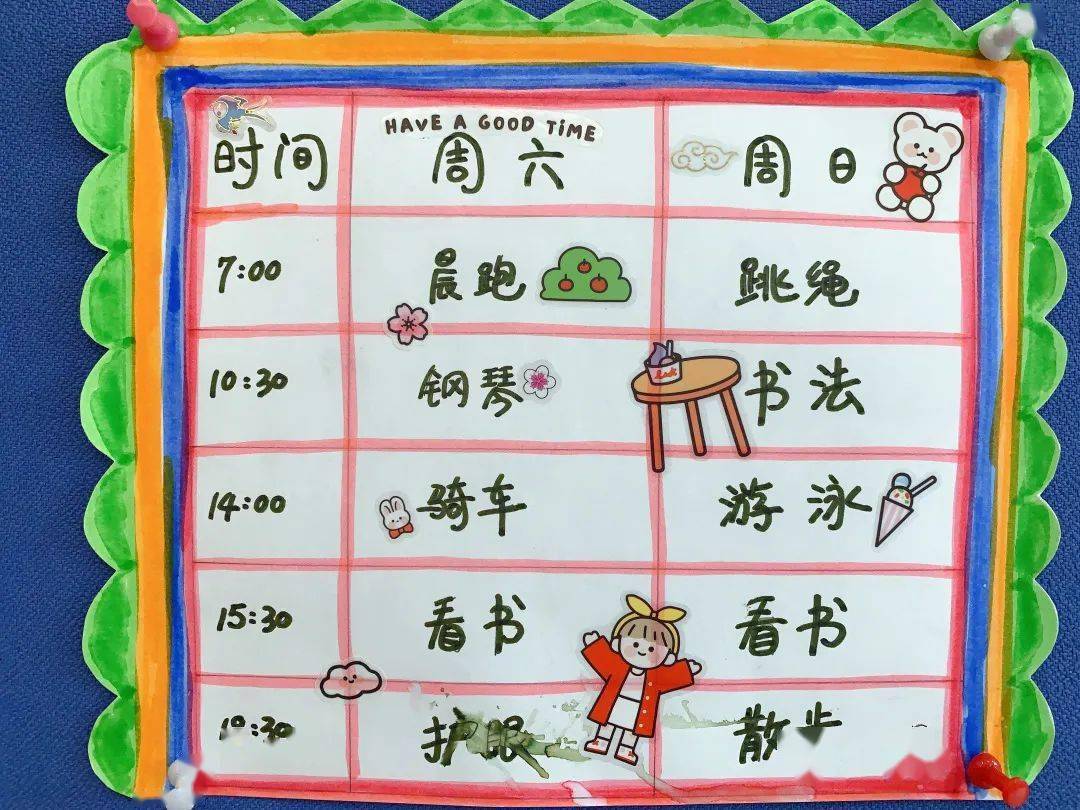 HAVE A GOOD TiME
时间 周六 周日
7:00 晨跑 跳绳
10:30 钢琴 书法
14:00 骑车 游泳
15:30 看书 看书
护眼 散步